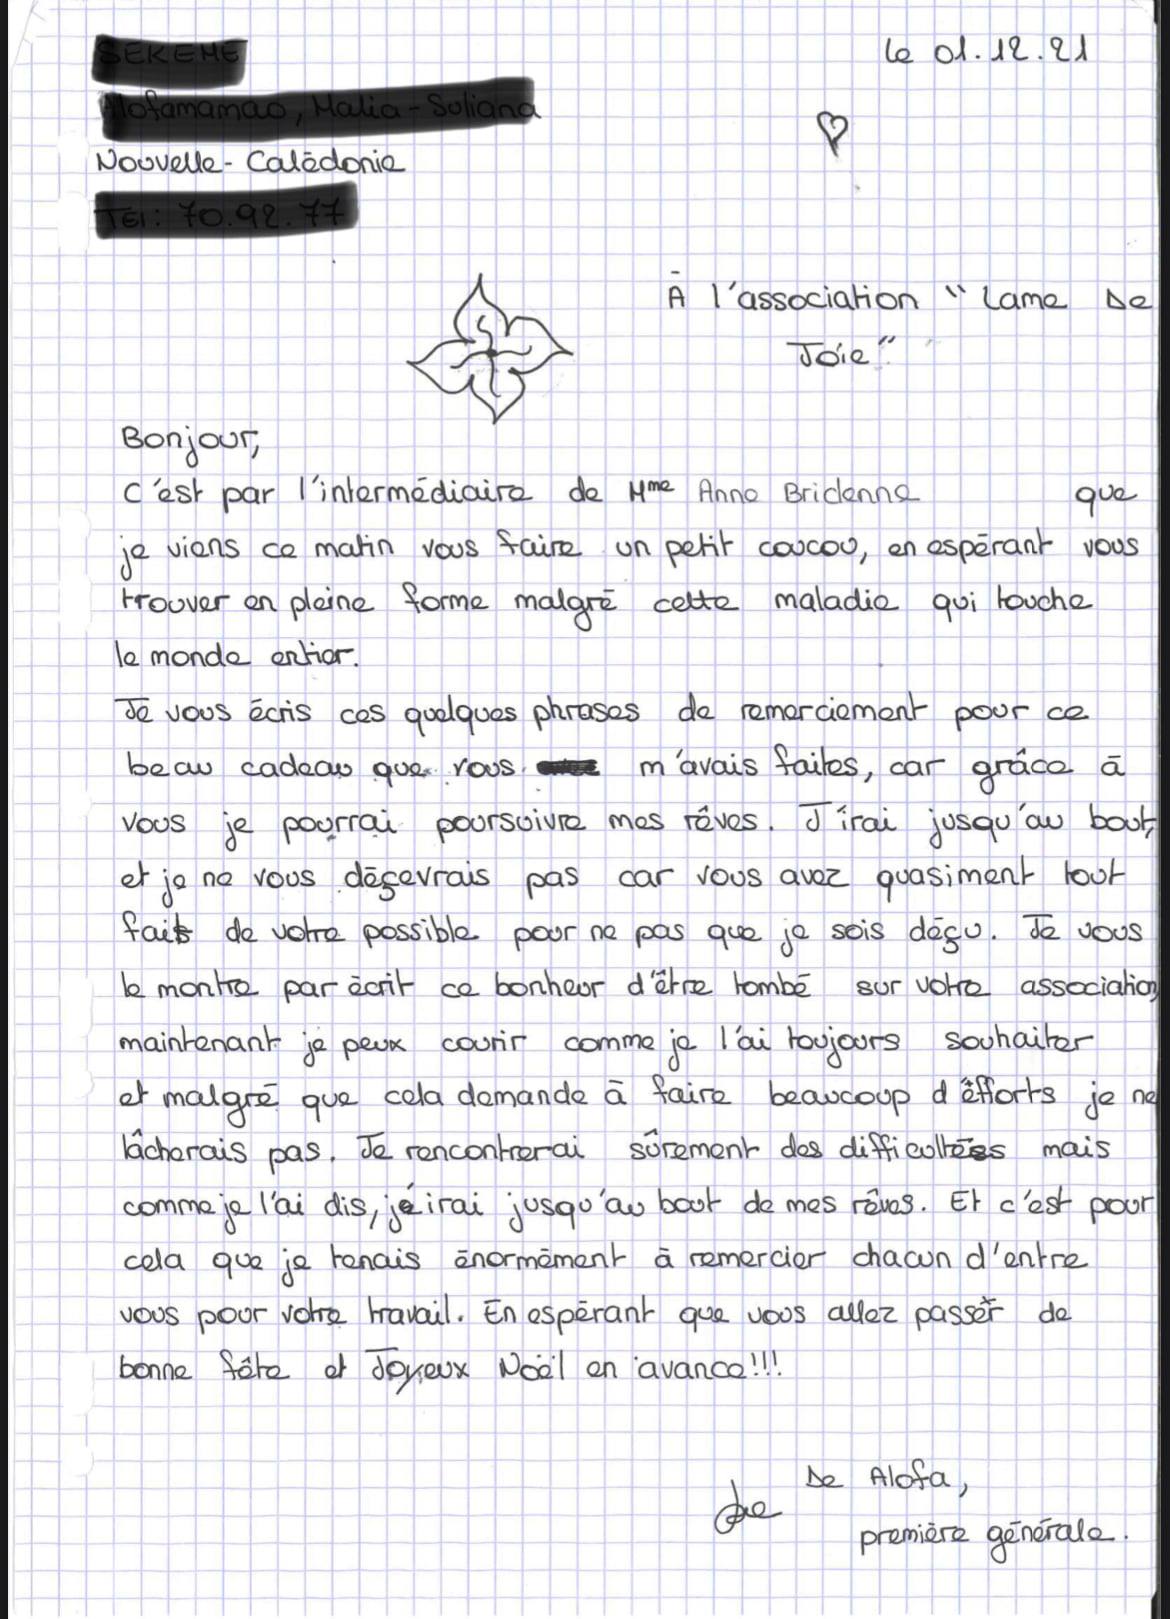 le 01.12.21
Nouvelle-Calédonie
À l'association "Lame De
Joie"
Bonjour,
C'est par l'intermédiaire de Mme Anne Bridenne que
je viens ce matin vous faire un petit coucou, en espérant vous
trouver en pleine forme malgré cette maladie qui touche
le monde entier.
Je vous écris ces quelques phrases de remerciement pour ce
beau cadeau que vous m'avais faites, car grâce à
vous je pourrai poursuivre mes rêves. J'irai jusqu'au bout,
et je ne vous déçevrais pas car vous avez quasiment tout
fait de votre possible pour ne pas que je sois déçu. Je vous
le montre par écrit ce bonheur d'être tombé sur votre association
maintenant je peux courir comme je l'ai toujours souhaiter
et malgré que cela demande à faire beaucoup d'éfforts je ne
lâcherais pas. Je rencontrerai sûrement des difficultées mais
comme je l'ai dis, j'irai jusqu'au bout de mes rêves. Et c'est pour
cela que je tenais énormément à remercier chacun d'entre
vous pour votre travail. En espérant que vous allez passer de
bonne fête et Joyeux Noël en avance!!!
De Alofa,
première générale.